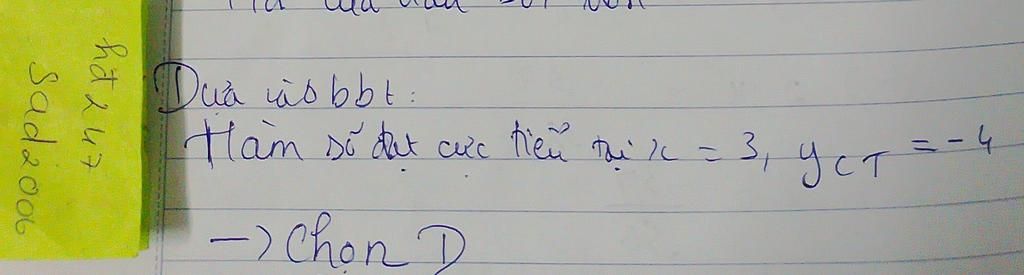 Dựa vào bbt:
Hàm số đạt cực tiểu tại x = 3, yCT = -4
-> Chọn D
hđ247
Sad2006